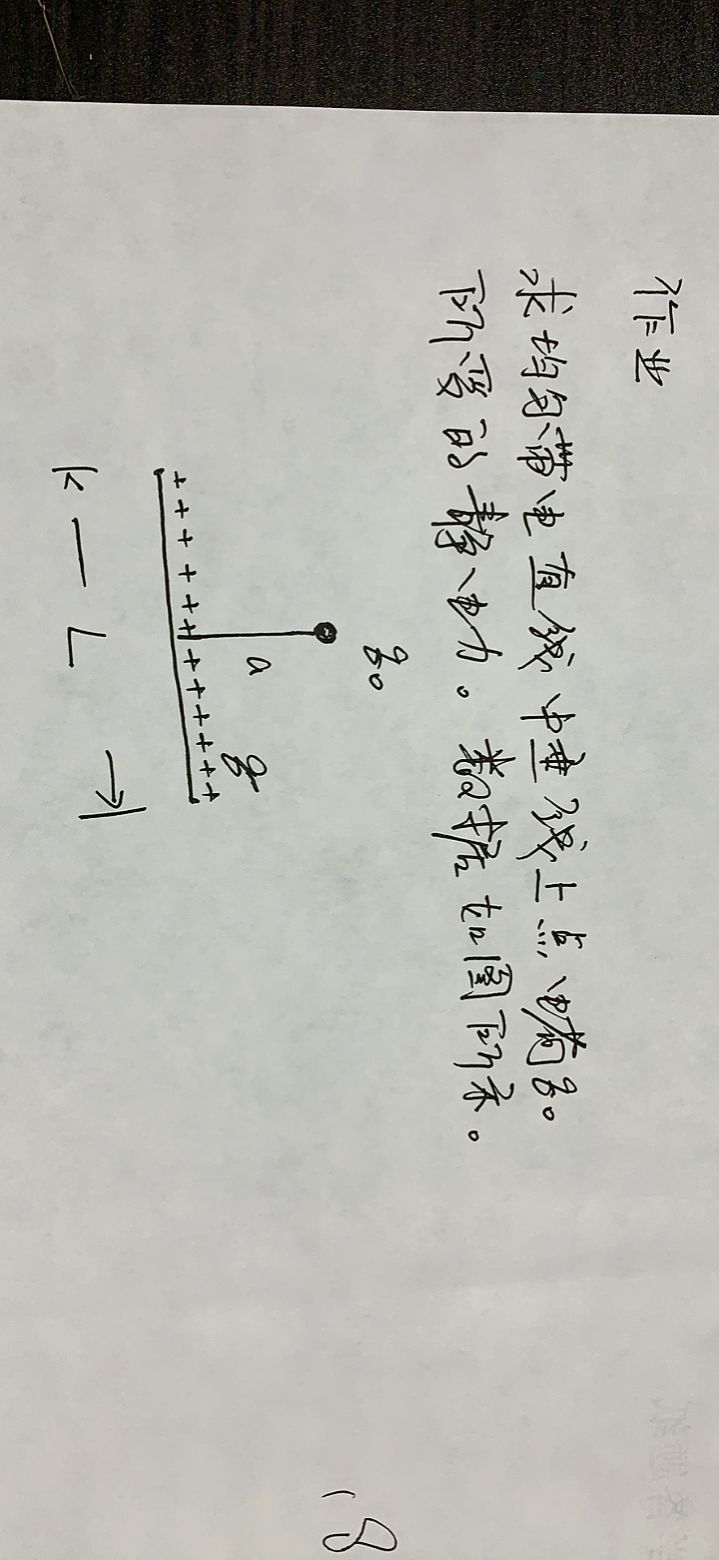 作业
求均匀带电直线中垂线上点电荷q₀
所受的静电力。数据如图所示。
q₀
a
q
L